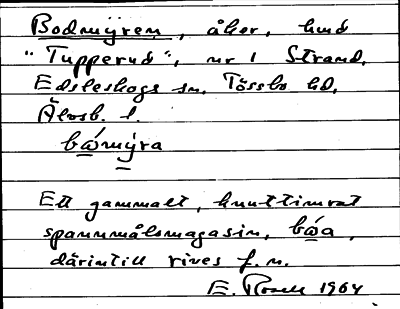 Bodmýren, åker, hmd
"Tupperud", nr 1 Strand,
Edsleskogs sn. Tössbo hd.
Älvsb. l.
bώmýra
Ett gammalt, knuttimrat
spannmålsmagasin, bώa,
därintill rives f. n.
E. 1964